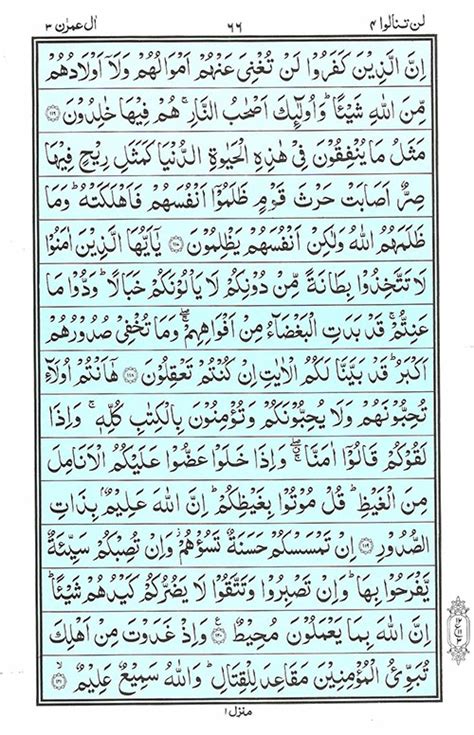 لن تنالوا ۴ ۶۶ اٰل عمرٰن ۳
اِنَّ الَّذِيْنَ كَفَرُوْا لَنْ تُغْنِيَ عَنْهُمْ اَمْوَالُهُمْ وَلَاۤ اَوْلَادُهُمْ
مِّنَ اللّٰهِ شَيْـًٔا ؕ وَاُولٰٓئِكَ اَصْحٰبُ النَّارِ ۚ هُمْ فِيْهَا خٰلِدُوْنَ ﴿۱۱۶﴾
مَثَلُ مَا يُنْفِقُوْنَ فِيْ هٰذِهِ الْحَيٰوةِ الدُّنْيَا كَمَثَلِ رِيْحٍ فِيْهَا
صِرٌّ اَصَابَتْ حَرْثَ قَوْمٍ ظَلَمُوْۤا اَنْفُسَهُمْ فَاَهْلَكَتْهُ ؕ وَمَا
ظَلَمَهُمُ اللّٰهُ وَلٰكِنْ اَنْفُسَهُمْ يَظْلِمُوْنَ ﴿۱۱۷﴾ يٰۤاَيُّهَا الَّذِيْنَ اٰمَنُوْا
لَا تَتَّخِذُوْا بِطَانَةً مِّنْ دُوْنِكُمْ لَا يَاْلُوْنَكُمْ خَبَالًا ؕ وَدُّوْا مَا
عَنِتُّمْ ۚ قَدْ بَدَتِ الْبَغْضَآءُ مِنْ اَفْوَاهِهِمْ ۖۚ وَمَا تُخْفِيْ صُدُوْرُهُمْ
اَكْبَرُ ؕ قَدْ بَيَّنَّا لَكُمُ الْاٰيٰتِ اِنْ كُنْتُمْ تَعْقِلُوْنَ ﴿۱۱۸﴾ هٰۤاَنْتُمْ اُولَآءِ
تُحِبُّوْنَهُمْ وَلَا يُحِبُّوْنَكُمْ وَتُؤْمِنُوْنَ بِالْكِتٰبِ كُلِّهٖ ۚ وَاِذَا
لَقُوْكُمْ قَالُوْۤا اٰمَنَّا ۖۚ وَاِذَا خَلَوْا عَضُّوْا عَلَيْكُمُ الْاَنَامِلَ
مِنَ الْغَيْظِ ؕ قُلْ مُوْتُوْا بِغَيْظِكُمْ ؕ اِنَّ اللّٰهَ عَلِيْمٌۢ بِذَاتِ
الصُّدُوْرِ ﴿۱۱۹﴾ اِنْ تَمْسَسْكُمْ حَسَنَةٌ تَسُؤْهُمْ ؗ وَاِنْ تُصِبْكُمْ سَيِّئَةٌ
يَّفْرَحُوْا بِهَا ؕ وَاِنْ تَصْبِرُوْا وَتَتَّقُوْا لَا يَضُرُّكُمْ كَيْدُهُمْ شَيْـًٔا ؕ
اِنَّ اللّٰهَ بِمَا يَعْمَلُوْنَ مُحِيْطٌ ﴿۱۲۰﴾ وَاِذْ غَدَوْتَ مِنْ اَهْلِكَ
تُبَوِّئُ الْمُؤْمِنِيْنَ مَقَاعِدَ لِلْقِتَالِ ؕ وَاللّٰهُ سَمِيْعٌ عَلِيْمٌ ﴿۱۲۱﴾
منزل ۱